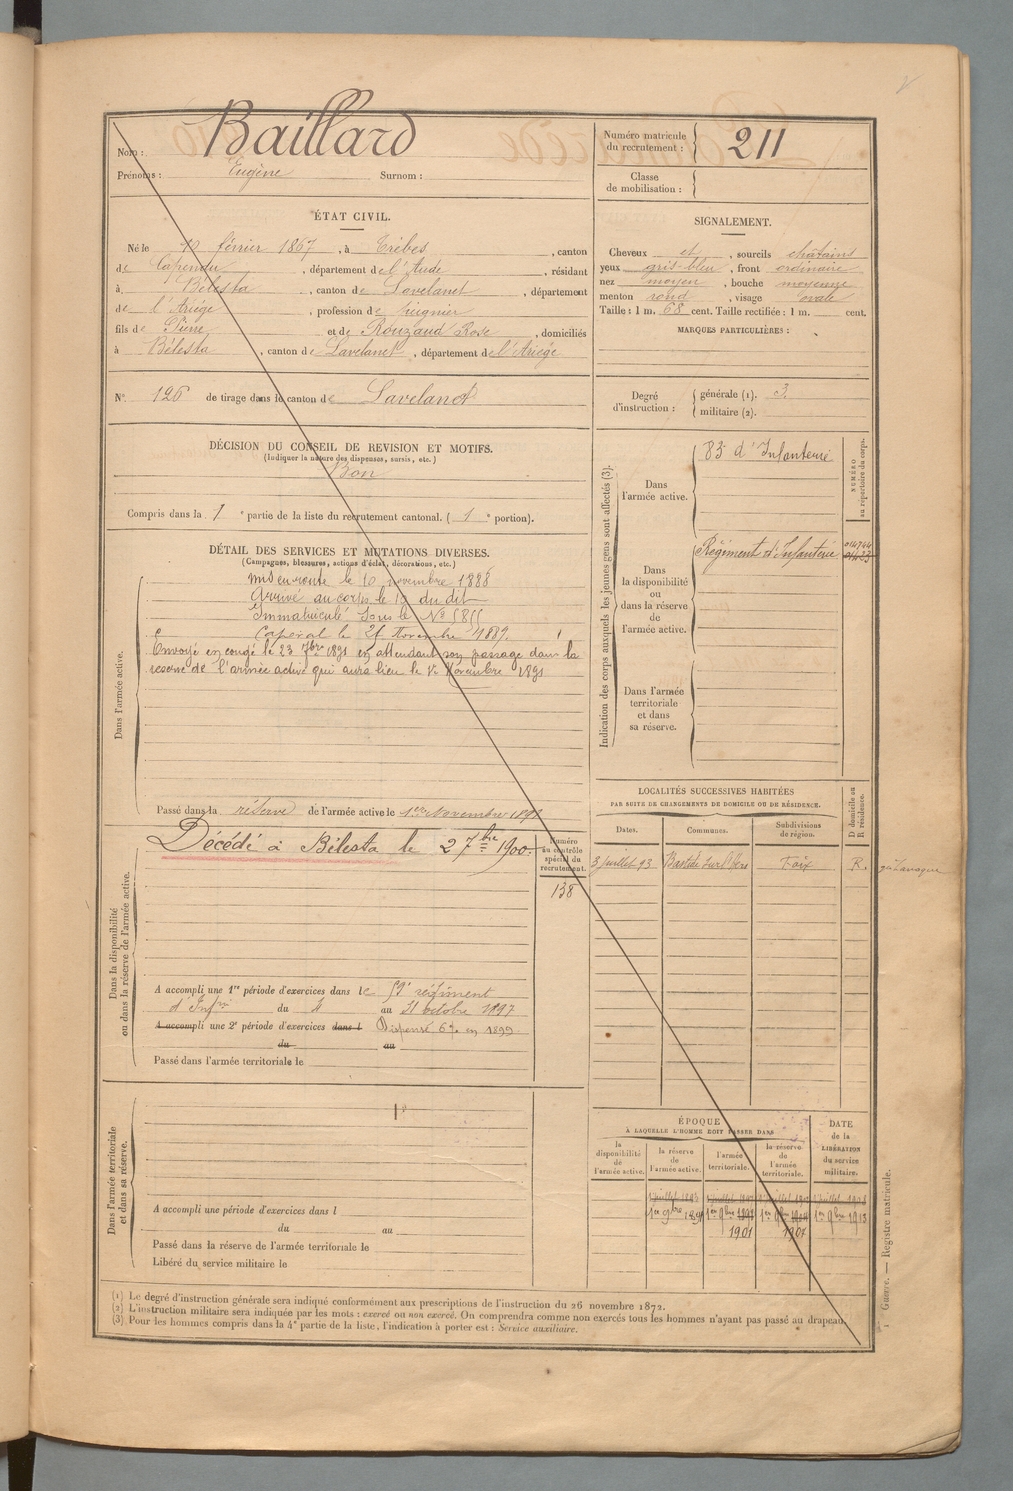 Nom : Baillard
Prénoms : Eugène Surnom :
ÉTAT CIVIL.
Né le 10 février 1867, à Trèbes, canton
de Capendu, département de l'Aude, résidant
à Bélesta, canton de Lavelanet, département
de l'Ariège, profession de peignier
fils de Pierre et de Rouzaud Rose, domiciliés
à Bélesta, canton de Lavelanet, département de l'Ariège
N° 126 de tirage dans le canton de Lavelanet
DÉCISION DU CONSEIL DE REVISION ET MOTIFS.
(Indiquer la nature des dispenses, sursis, etc.)
Bon
Compris dans la 1e partie de la liste du recrutement cantonal. ( 1e portion).
DÉTAIL DES SERVICES ET MUTATIONS DIVERSES.
(Campagnes, blessures, actions d'éclat, décorations, etc.)
Dans l'armée active.
Mis en route le 10 novembre 1888
Arrivé au corps le 10 du dit
Immatriculé sous le N° 5855
Caporal le 21 Novembre 1889.
Envoyé en congé le 23 7bre 1891 en attendant son passage dans la
réserve de l'armée active qui aura lieu le 1er Novembre 1891
Passé dans la réserve de l'armée active le 1er Novembre 1891
Dans la disponibilité
ou dans la réserve de l'armée active.
Décédé à Bélesta le 2 7bre 1900.
Numéro
au contrôle
spécial du
recrutement.
138
A accompli une 1re période d'exercices dans le 59e régiment
d'Infrie du 4 au 31 octobre 1897
A accompli une 2e période d'exercices dans l Dispensé en 1899.
du au
Passé dans l'armée territoriale le
Dans l'armée territoriale
et dans sa réserve.
A accompli une période d'exercices dans l
du au
Passé dans la réserve de l'armée territoriale le
Libéré du service militaire le
Numéro matricule
du recrutement : 211
Classe
de mobilisation :
SIGNALEMENT.
Cheveux et, sourcils châtains
yeux gris-bleu, front ordinaire
nez moyen, bouche moyenne
menton rond, visage ovale
Taille : 1 m. 68 cent. Taille rectifiée : 1 m. cent.
MARQUES PARTICULIÈRES :
Degré
d'instruction :
générale (1). 3.
militaire (2).
Indication des corps auxquels les jeunes gens sont affectés (3).
NUMÉRO
au répertoire du corps.
Dans
l'armée active.
83e d'Infanterie
Dans
la disponibilité
ou
dans la réserve
de
l'armée active.
Régiment d'Infanterie
Dans l'armée
territoriale
et dans
sa réserve.
LOCALITÉS SUCCESSIVES HABITÉES
PAR SUITE DE CHANGEMENTS DE DOMICILE OU DE RÉSIDENCE.
Dates. Communes. Subdivisions de région. D. domicile ou R. résidence.
3 juillet 93 Bastide sur l'Hers Foix R.
ÉPOQUE
À LAQUELLE L'HOMME DOIT PASSER DANS
la disponibilité de l'armée active.
la réserve de l'armée active.
l'armée territoriale.
la réserve de l'armée territoriale.
DATE de la LIBÉRATION du service militaire.
1er 9bre 1891 1er 9bre 1er 9bre 1er 9bre 1913
1901
Guerre. — Registre matricule.
(1) Le degré d'instruction générale sera indiqué conformément aux prescriptions de l'instruction du 26 novembre 1872.
(2) L'instruction militaire sera indiquée par les mots : exercé ou non exercé. On comprendra comme non exercés tous les hommes n'ayant pas passé au drapeau.
(3) Pour les hommes compris dans la 4e partie de la liste, l'indication à porter est : Service auxiliaire.